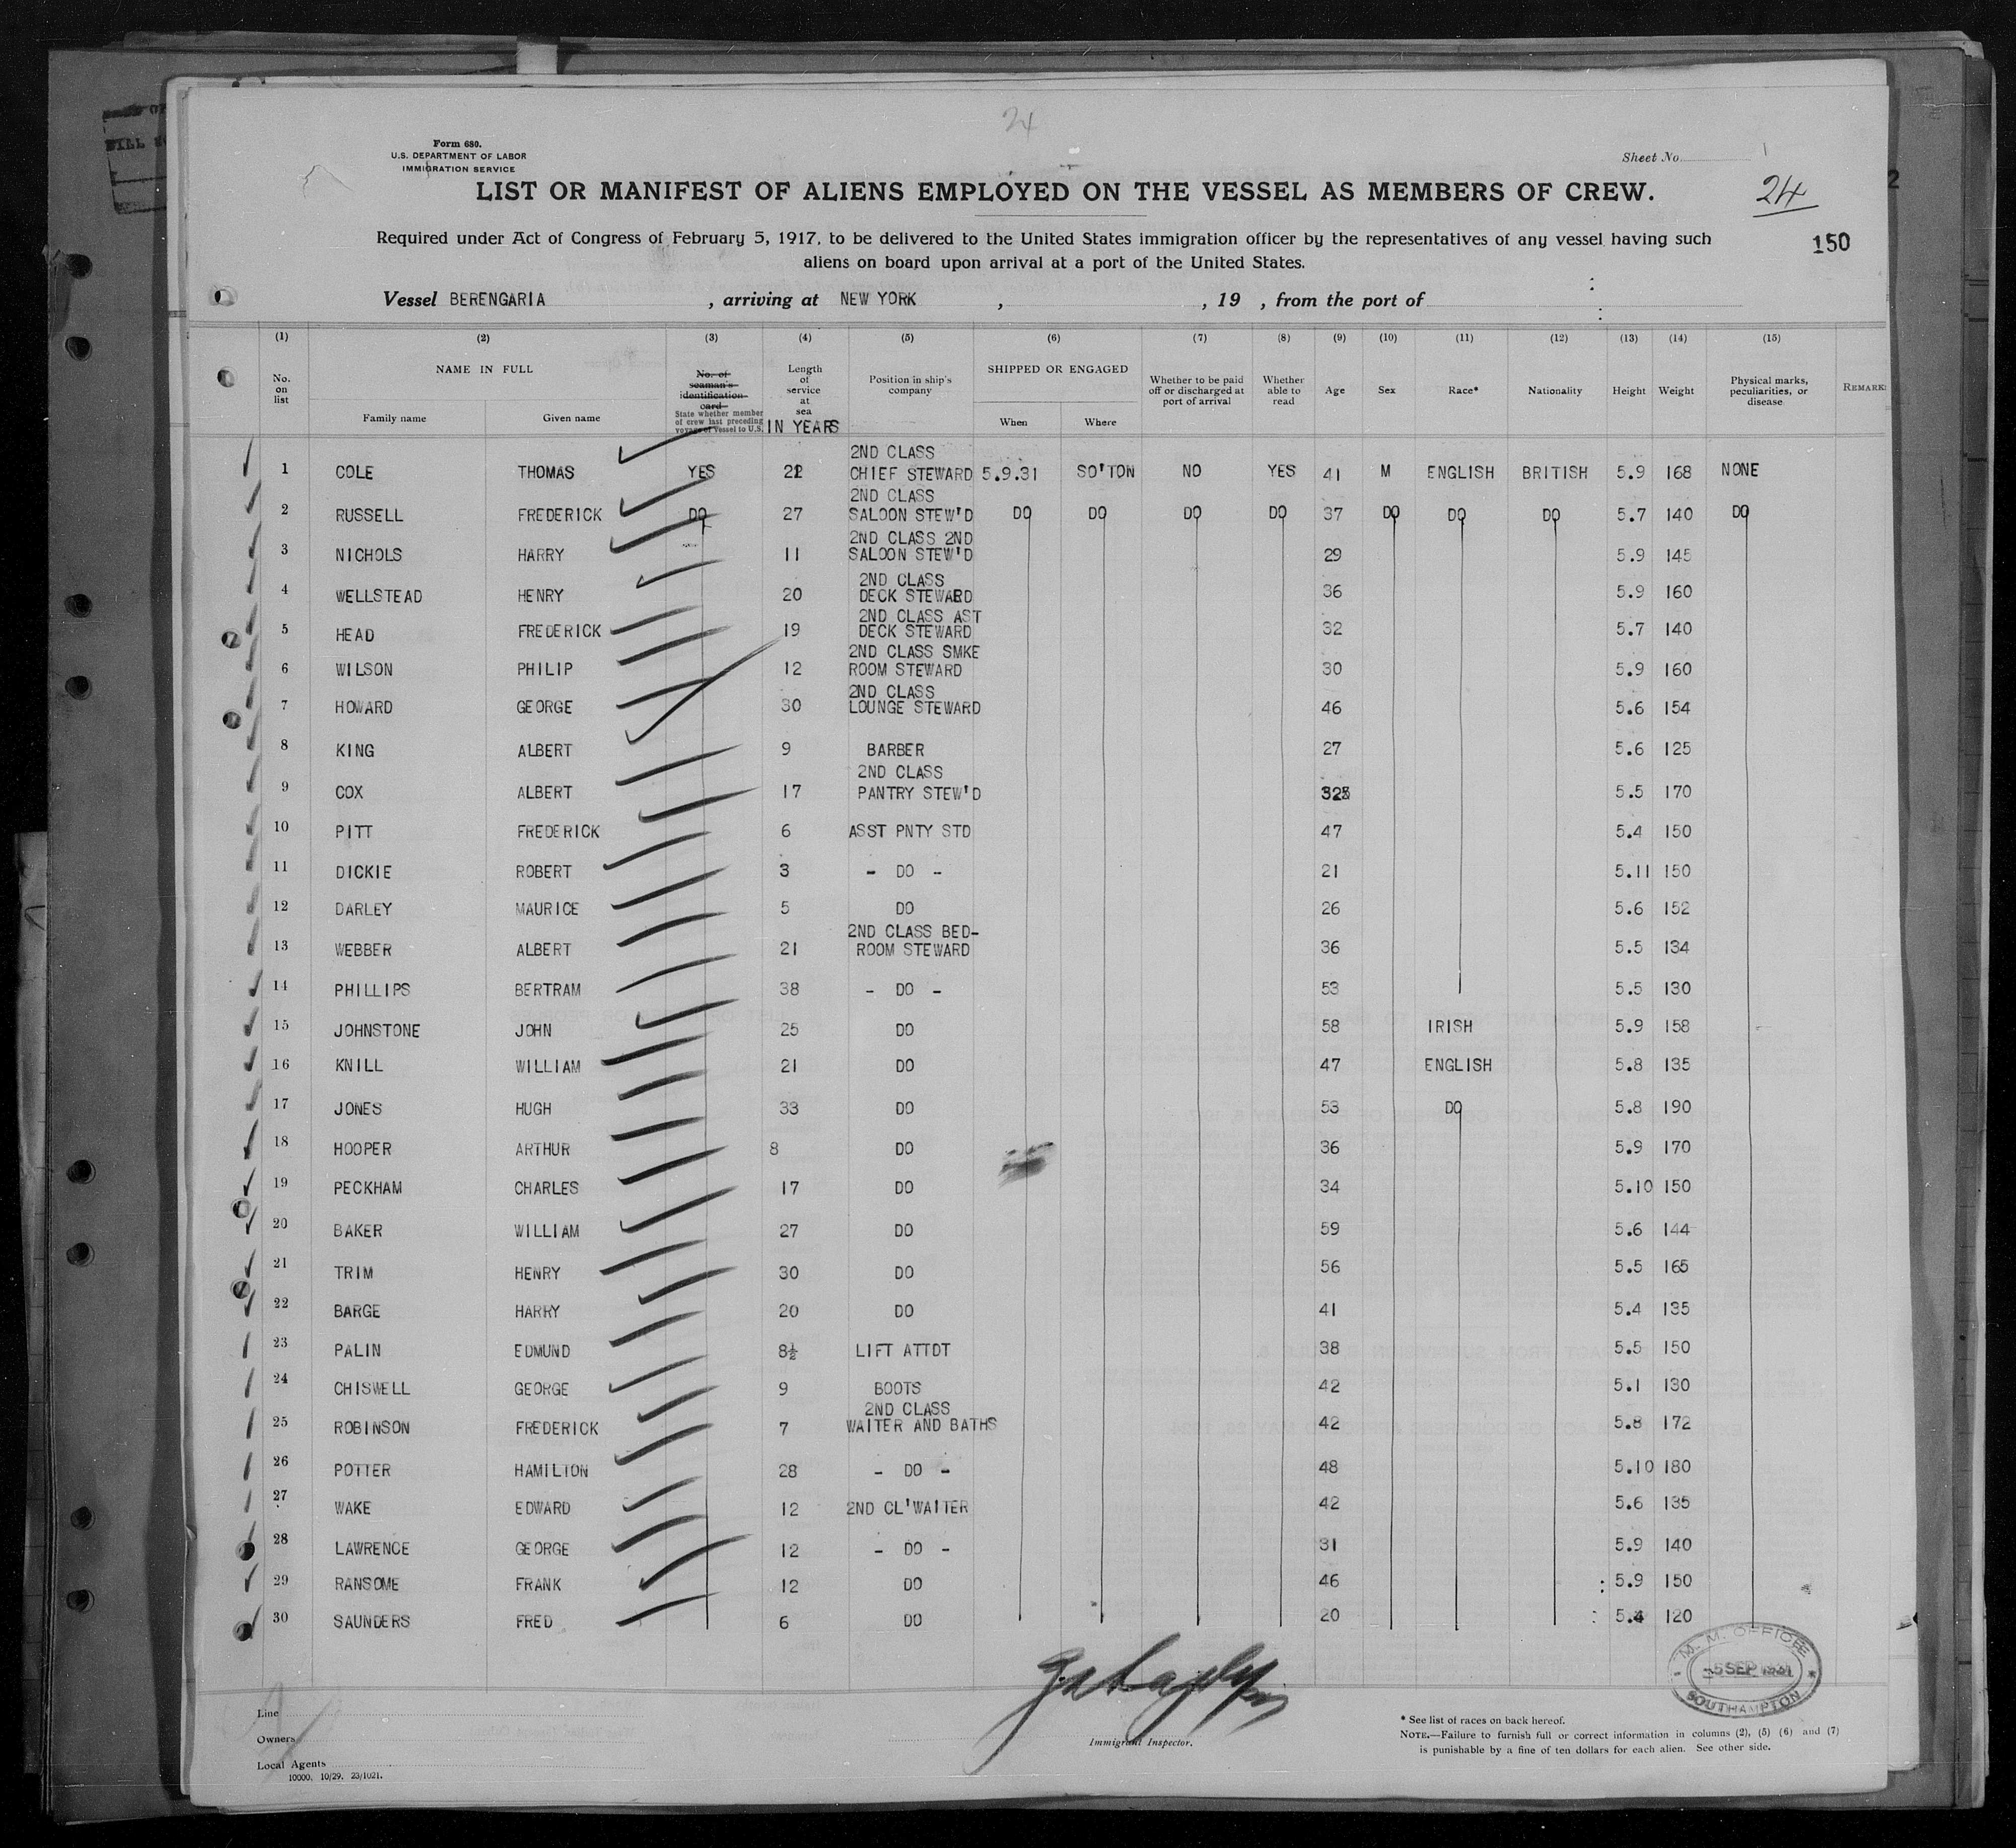 24
Form 680.
U.S. DEPARTMENT OF LABOR
IMMIGRATION SERVICE
Sheet No.
LIST OR MANIFEST OF ALIENS EMPLOYED ON THE VESSEL AS MEMBERS OF CREW.
24
Required under Act of Congress of February 5, 1917, to be delivered to the United States immigration officer by the representatives of any vessel having such
150
aliens on board upon arrival at a port of the United States.
Vessel BERENGARIA , arriving at NEW YORK , , 19 , from the port of
(1) (2) (3) (4) (5) (6) (7) (8) (9) (10) (11) (12) (13) (14) (15)
No. on list NAME IN FULL Family name Given name No. of seaman's identification card State whether member of crew last preceding voyage of vessel to U.S. Length of service at sea IN YEARS Position in ship's company SHIPPED OR ENGAGED When Where Whether to be paid off or discharged at port of arrival Whether able to read Age Sex Race* Nationality Height Weight Physical marks, peculiarities, or disease REMARKS
2ND CLASS
1 COLE THOMAS YES 22 CHIEF STEWARD 5.9.31 SO'TON NO YES 41 M ENGLISH BRITISH 5.9 168 NONE
2ND CLASS
2 RUSSELL FREDERICK DO 27 SALOON STEW'D DO DO DO DO 37 DO DO DO 5.7 140 DO
2ND CLASS 2ND
3 NICHOLS HARRY 11 SALOON STEW'D 29 5.9 145
2ND CLASS
4 WELLSTEAD HENRY 20 DECK STEWARD 36 5.9 160
2ND CLASS AST
5 HEAD FREDERICK 19 DECK STEWARD 32 5.7 140
2ND CLASS SMKE
6 WILSON PHILIP 12 ROOM STEWARD 30 5.9 160
2ND CLASS
7 HOWARD GEORGE 30 LOUNGE STEWARD 46 5.6 154
8 KING ALBERT 9 BARBER 27 5.6 125
2ND CLASS
9 COX ALBERT 17 PANTRY STEW'D 5.5 170
10 PITT FREDERICK 6 ASST PNTY STD 47 5.4 150
11 DICKIE ROBERT 3 - DO - 21 5.11 150
12 DARLEY MAURICE 5 DO 26 5.6 152
2ND CLASS BED-
13 WEBBER ALBERT 21 ROOM STEWARD 36 5.5 134
14 PHILLIPS BERTRAM 38 - DO - 53 5.5 130
15 JOHNSTONE JOHN 25 DO 58 IRISH 5.9 158
16 KNILL WILLIAM 21 DO 47 ENGLISH 5.8 135
17 JONES HUGH 33 DO 53 DO 5.8 190
18 HOOPER ARTHUR 8 DO 36 5.9 170
19 PECKHAM CHARLES 17 DO 34 5.10 150
20 BAKER WILLIAM 27 DO 59 5.6 144
21 TRIM HENRY 30 DO 56 5.5 165
22 BARGE HARRY 20 DO 41 5.4 135
23 PALIN EDMUND 8½ LIFT ATTDT 38 5.5 150
24 CHISWELL GEORGE 9 BOOTS 42 5.1 130
2ND CLASS
25 ROBINSON FREDERICK 7 WAITER AND BATHS 42 5.8 172
26 POTTER HAMILTON 28 - DO - 48 5.10 180
27 WAKE EDWARD 12 2ND CL'WAITER 42 5.6 135
28 LAWRENCE GEORGE 12 - DO - 31 5.9 140
29 RANSOME FRANK 12 DO 46 5.9 150
30 SAUNDERS FRED 6 DO 20 5.4 120
M. M. OFFICE
5 SEP 1931
SOUTHAMPTON
Line
Owners
Local Agents
10000. 10/29. 23/1021.
Immigrant Inspector.
* See list of races on back hereof.
NOTE.—Failure to furnish full or correct information in columns (2), (5) (6) and (7)
is punishable by a fine of ten dollars for each alien. See other side.